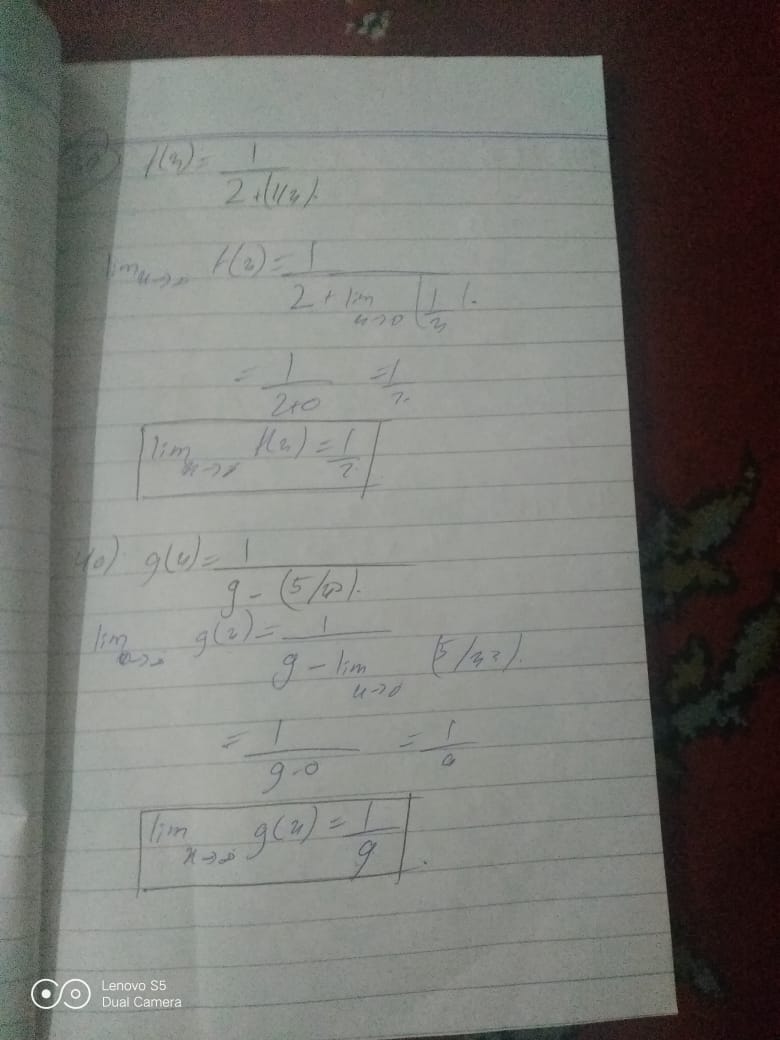 f(x) = 1 / 2 + (1/x).
lim x→∞ f(x) = 1 / 2 + lim x→0 (1/x).
= 1 / 2+0 = 1/2.
lim x→∞ f(x) = 1/2.
40) g(x) = 1 / 9 - (5/x²).
lim x→∞ g(x) = 1 / 9 - lim x→0 (5/x²).
= 1 / 9-0 = 1/9
lim x→∞ g(x) = 1/9.
Lenovo S5
Dual Camera